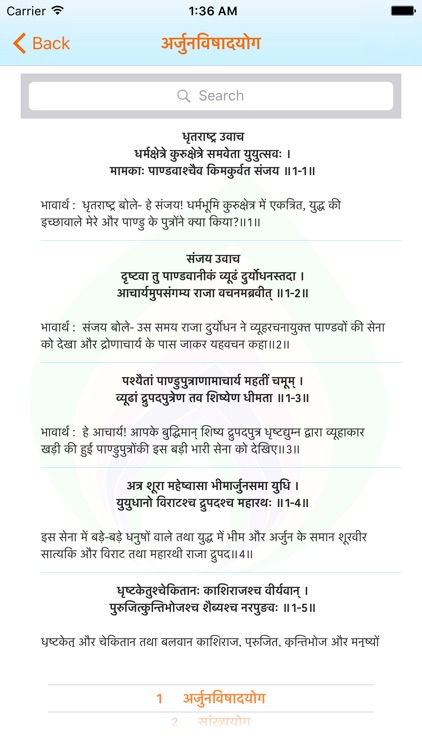 Carrier 1:36 AM
Back अर्जुनविषादयोग
Search
धृतराष्ट्र उवाच
धर्मक्षेत्रे कुरुक्षेत्रे समवेता युयुत्सवः ।
मामकाः पाण्डवाश्चैव किमकुर्वत संजय ॥1-1॥
भावार्थ : धृतराष्ट्र बोले- हे संजय! धर्मभूमि कुरुक्षेत्र में एकत्रित, युद्ध की
इच्छावाले मेरे और पाण्डु के पुत्रोंने क्या किया?॥1॥
संजय उवाच
दृष्टवा तु पाण्डवानीकं व्यूढं दुर्योधनस्तदा ।
आचार्यमुपसंगम्य राजा वचनमब्रवीत् ॥1-2॥
भावार्थ : संजय बोले- उस समय राजा दुर्योधन ने व्यूहरचनायुक्त पाण्डवों की सेना
को देखा और द्रोणाचार्य के पास जाकर यहवचन कहा॥2॥
पश्यैतां पाण्डुपुत्राणामाचार्य महतीं चमूम् ।
व्यूढां द्रुपदपुत्रेण तव शिष्येण धीमता ॥1-3॥
भावार्थ : हे आचार्य! आपके बुद्धिमान् शिष्य द्रुपदपुत्र धृष्टद्युम्न द्वारा व्यूहाकार
खड़ी की हुई पाण्डुपुत्रोंकी इस बड़ी भारी सेना को देखिए॥3॥
अत्र शूरा महेष्वासा भीमार्जुनसमा युधि ।
युयुधानो विराटश्च द्रुपदश्च महारथः ॥1-4॥
इस सेना में बड़े-बड़े धनुषों वाले तथा युद्ध में भीम और अर्जुन के समान शूरवीर
सात्यकि और विराट तथा महारथी राजा द्रुपद॥4॥
धृष्टकेतुश्चेकितानः काशिराजश्च वीर्यवान् ।
पुरुजित्कुन्तिभोजश्च शैब्यश्च नरपुङवः ॥1-5॥
धृष्टकेतु और चेकितान तथा बलवान काशिराज, पुरुजित, कुन्तिभोज और मनुष्यों
1 अर्जुनविषादयोग
2 सांख्ययोग